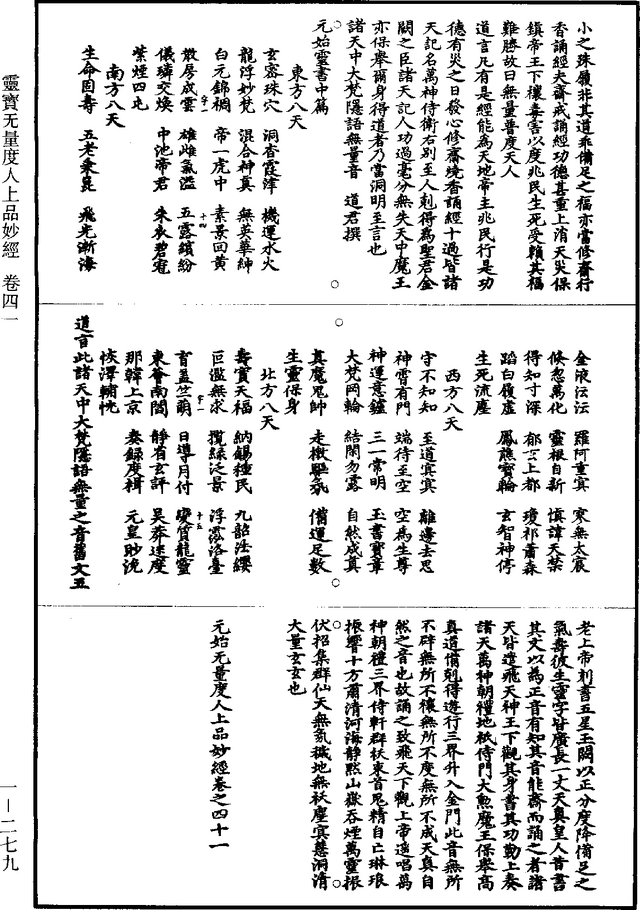 靈寶无量度人上品妙經 卷四一
一—二七九
小之殊嶺非其道乖備足之福亦當修齋行
香誦經夫齋戒誦經功德甚重上消天災保
鎮帝王下禳毒害以度兆民生死受賴其福
難勝故曰無量普度天人
道言凡有是經能為天地帝主兆民行是功
德有災之日發心修齋燒香誦經十過皆諸
天記名萬神侍衛右別至人剋得為聖君金
闕之臣諸天記人功過毫分無失天中魔王
亦保舉爾身得道者乃當洞明至言也
諸天中大梵隱語無量音 道君撰
元始靈書中篇
東方八天
玄寥珠穴 洞杳霞澤 機運水火
龍浮妙梵 混合神真 無英華紳
白元錦裯 帝一虎中 素景回黃
散房成雲 雄雌氣溢 五露繽紛
儀璘交煥 中池帝君 朱衣碧寇
紫煙四屯
南方八天
生命固壽 五老乘晨 飛光漸海
金液沄沄 羅阿重寘 寒無太宸
倏忽萬化 靈根自新 慎諱天禁
得知寸深 郁二上都 瓊祁蕭森
蹈白履虛 鳳蕉寶輪 玄智神停
生死流塵
西方八天
守不知知 至道寘寘 離邊去思
神霄有門 端待至空 空為生尊
神運意鑪 三一常明 玉書寶章
大梵罔輪 結閉勿露 自然成真
真魔鬼帥 走檄驅氛 備運足數
生靈保身
北方八天
壽寶天福 納錫種民 九韶法纓
巨濫無求 攬緑泛景 浮霐洛臺
育盖竺萌 日導月付 變質龍靈
東啻南閻 靜有玄評 吴莽逮度
那韓上京 奏錄度楫 元皇眇浼
恢澤輔忱
道言此諸天中大梵隱語無量之音舊文五
老上帝刻書五星玉闕以正分度降備足之
氣壽彼生靈字皆廣長一丈天真皇人昔書
其文以為正音有知其音能齋而誦之者諸
天皆遣飛天神王下觀其身書其功勤上奏
諸天萬神朝禮地祇侍門大勲魔王保舉高
真道備剋得遊行三界升入金門此音無所
不辟無所不禳無所不度無所不成天真自
然之音也故誦之致飛天下觀上帝遥唱萬
神朝禮三界侍軒群妖束首鬼精自亡琳琅
振響十方肅清河海靜默山嶽吞煙萬靈振
伏招集群仙天無氛穢地無袄塵寘慧洞清
大量玄玄也
元始无量度人上品妙經卷之四十一